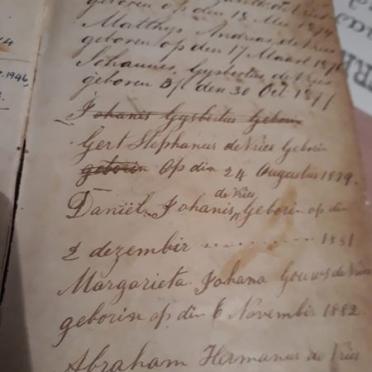 geboren op den 13 Mei 1874
Matthys Andries de Vries
geboren op den 17 Maart
Johannes Gysbertus de Vries
geboren op den 30 Oct 1877
Johanis Gysbertus Geborin
Gert Stephanus de Vries Geborin
geborin Op din 24 Augustus 1879.
de Vries
Daniël Johanis Geborin op din
2 dezembir 1881
Margarieta Johana Gouws de Vries
geborin op din 6 Novembir 1882
Abraham Hermanus de Vries
1946